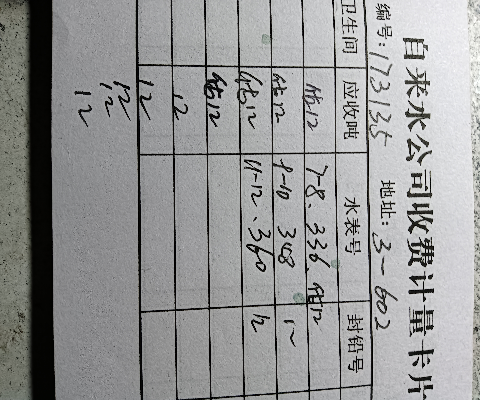 自来水公司收费计量卡片
编号:173135 地址:3-602
卫生间 应收吨 水表号 封铅号
估12 7-8.336.估12
估12 9-10 348 12
估12 11-12.360 12
估12
12
12
12
12
12